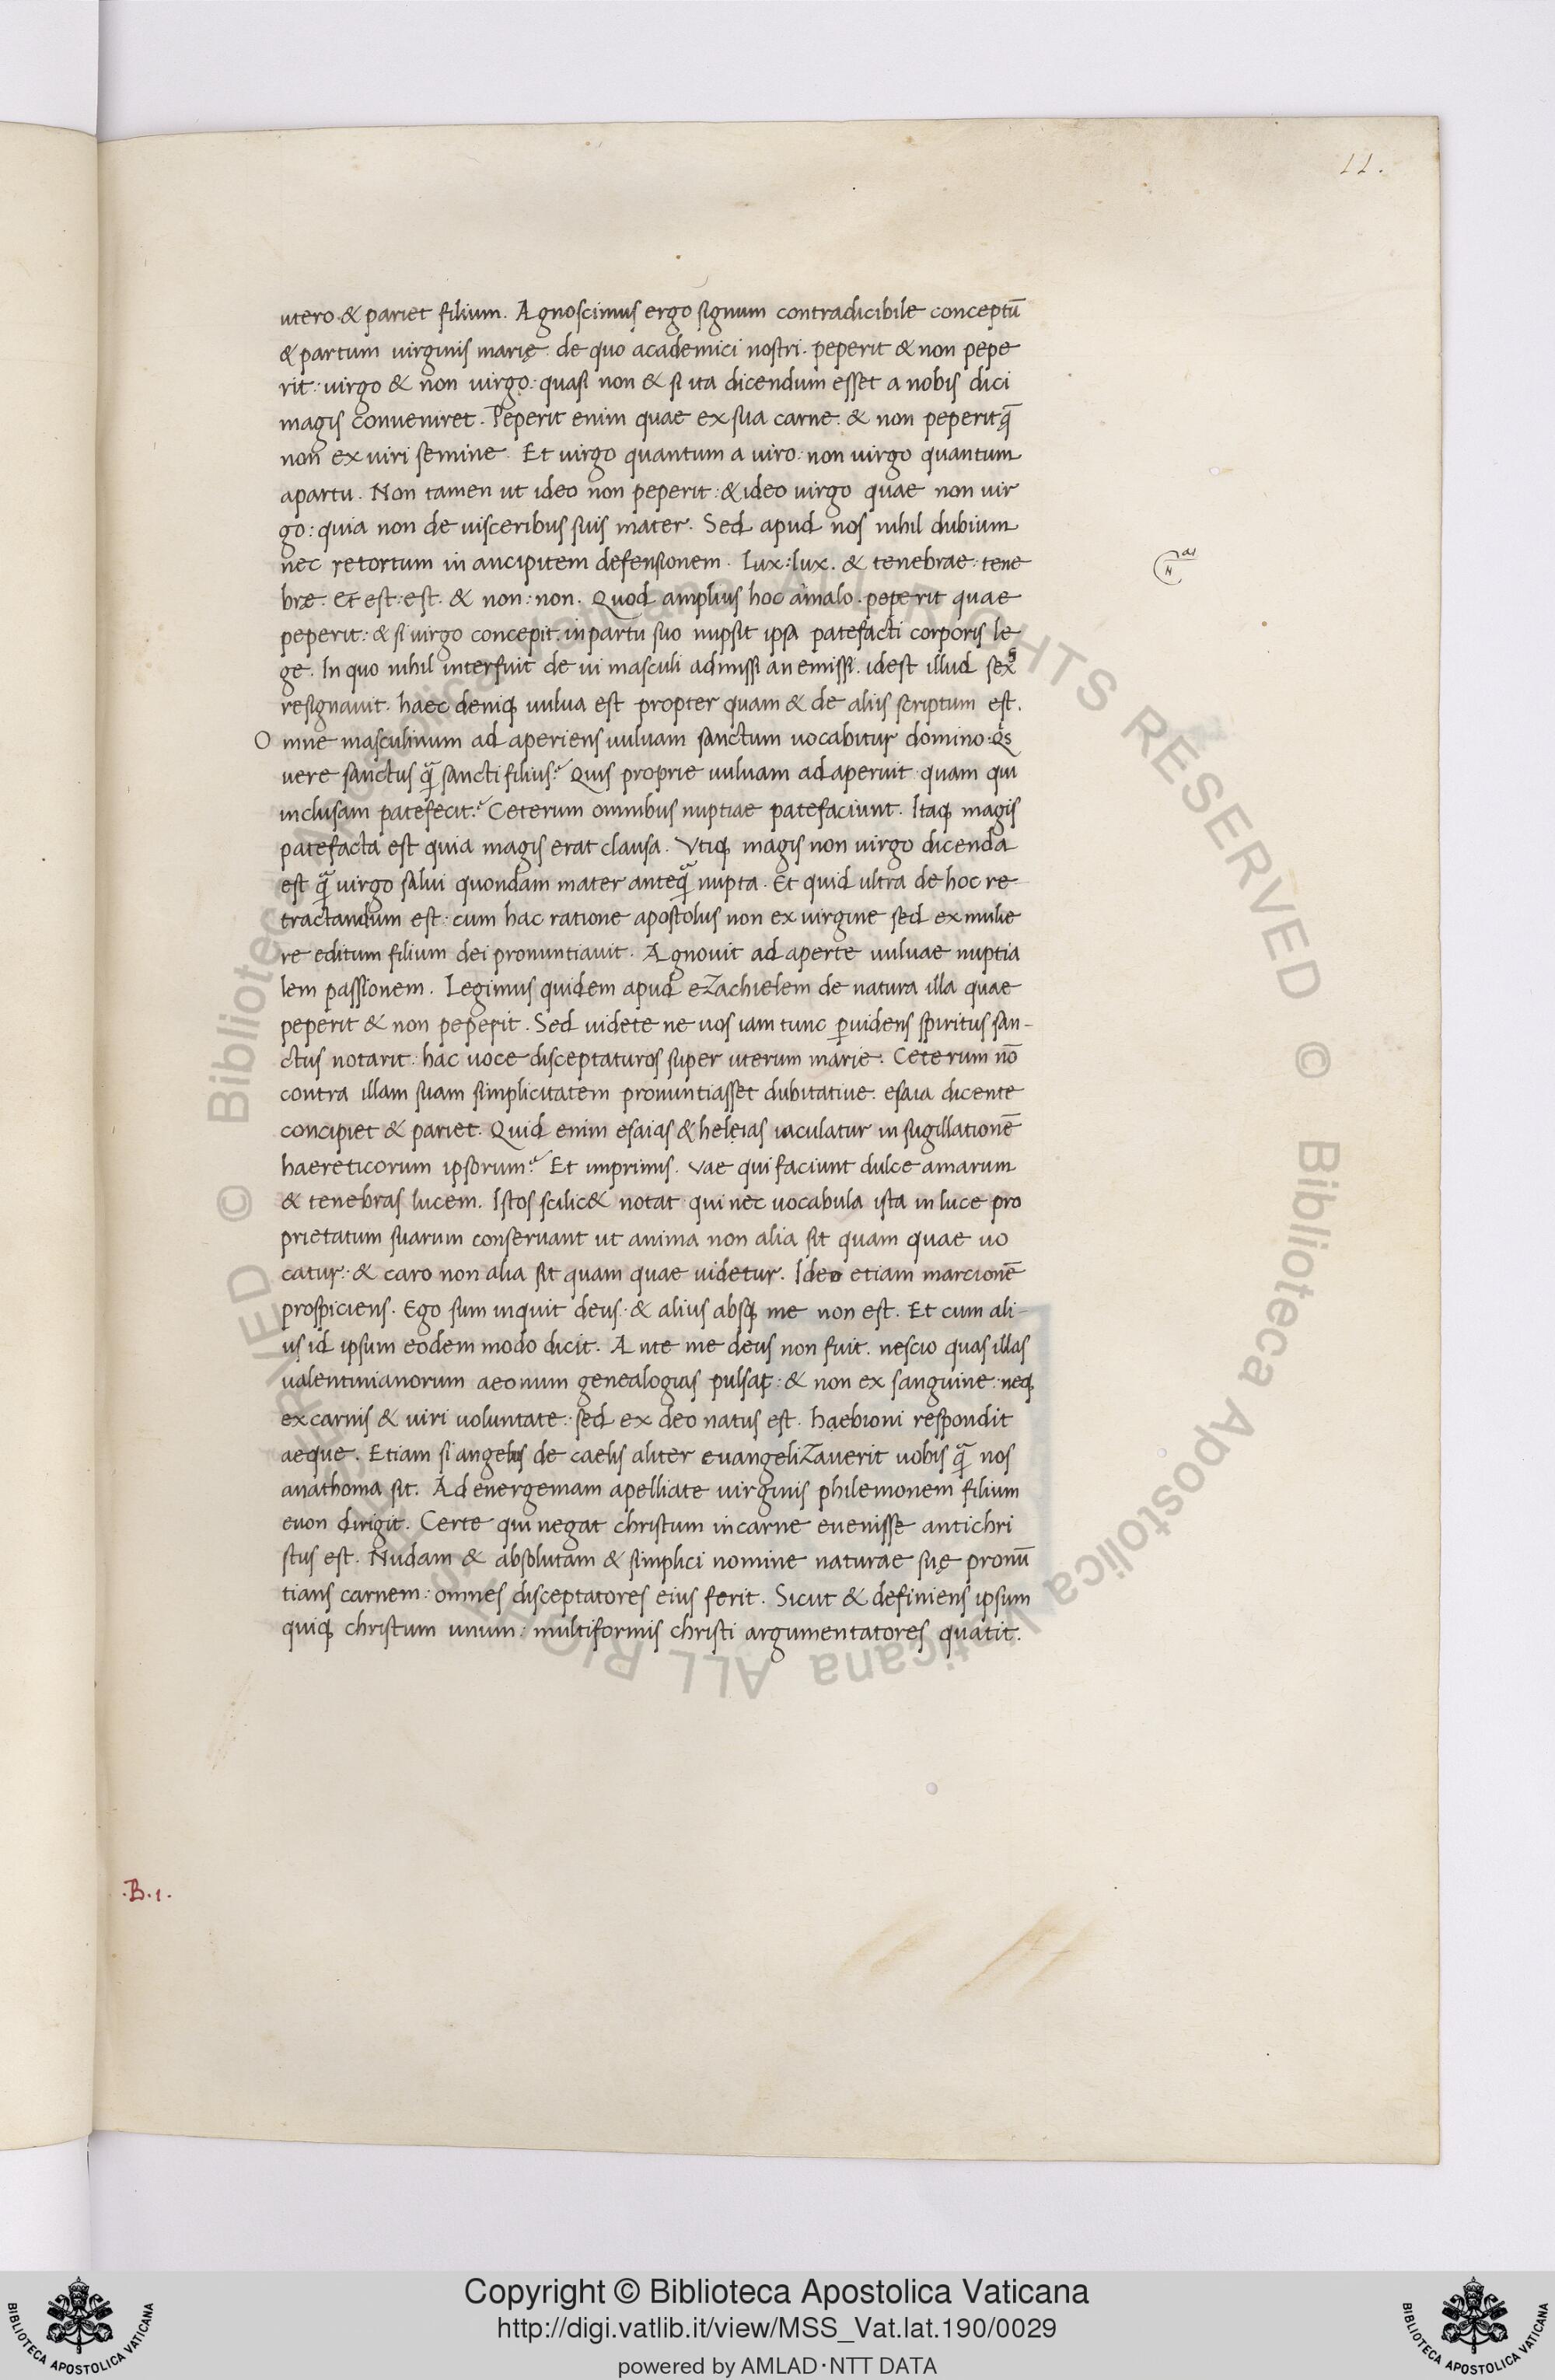 11.
utero. & pariet filium. Agnoscimus ergo signum contradicibile conceptū
& partum virginis marię. de quo academici nostri. peperit & non pepe
rit: virgo & non virgo: quasi non & si ita dicendum esset a nobis dici
magis conveniret. Peperit enim quae ex sua carne. & non peperit q̄
non ex viri semine. Et virgo quantum a viro: non virgo quantum
apartu. Non tamen ut ideo non peperit: & ideo virgo quae non vir
go: quia non de visceribus suis mater. Sed apud nos nihil dubium
nec retortum in ancipitem defensionem. Lux: lux. & tenebrae: tene
bre. Et est: est. & non: non. Quod amplius hoc a malo. peperit quae
peperit: & si virgo concepit. in partu suo nupsit ipsa patefacti corporis le
ge. In quo nihil interfuit de vi masculi admissi an emissi. idest illud
resignavit. haec deniq; vulva est propter quam & de aliis scriptum est.
Omne masculinum ad aperiens vulvam sanctum vocabitur domino. Qs
vere sanctus q̄ sancti filius? Quis proprie vulvam ad aperuit quam qui
inclusam patefecit? Ceterum omnibus nuptiae patefaciunt. Itaq; magis
patefacta est quia magis erat clausa. Utiq; magis non virgo dicenda
est q̄ virgo salvi quondam mater anteq̄ nupta. Et quid ultra de hoc re
tractandum est: cum hac ratione apostolus non ex virgine sed ex mulie
re editum filium dei pronuntiavit. Agnovit ad aperte vulvae nuptia
lem passionem. Legimus quidem apud eZachielem de natura illa quae
peperit & non peperit. Sed videte ne vos iam tunc ꝑvidens spiritus san-
ctus notarit: hac voce disceptaturos super uterum marie. Ceterum nō
contra illam suam simplicitatem pronuntiasset dubitative. esaia dicente
concipiet & pariet. Quid enim esaias & heleias iaculatur in sugillationē
haereticorum ipsorum? Et imprimis. Vae qui faciunt dulce amarum
& tenebras lucem. Istos scilic& notat qui nec vocabula ista in luce pro
prietatum suarum conservant ut anima non alia sit quam quae vo
catur: & caro non alia sit quam quae videtur. Ideo etiam marcionē
prospiciens. Ego sum inquit deus. & alius absq; me non est. Et cum ali-
us id ipsum eodem modo dicit. Ante me deus non fuit. nescio quas illas
valentinianorum aeonum genealogias pulsat: & non ex sanguine: neq;
ex carnis & viri voluntate: sed ex deo natus est. haebioni respondit
aeque. Etiam si angelus de caelis aliter evangeliZaverit vobis q̄ nos
anathoma sit. Ad energemam apelliate virginis philemonem filium
evon dirigit. Certe qui negat christum in carne evenisse antichri
stus est. Nudam & absolutam & simplici nomine naturae suę pronū
tians carnem: omnes disceptatores eius ferit. Sicut & definiens ipsum
quiq; christum unum: multiformis christi argumentatores quatit.
.B.1.
© Biblioteca Apostolica Vaticana ALL RIGHTS RESERVED © Biblioteca Apostolica Vaticana ALL RIGHTS RESERVED
Copyright © Biblioteca Apostolica Vaticana
http://digi.vatlib.it/view/MSS_Vat.lat.190/0029
powered by AMLAD·NTT DATA
BIBLIOTECA APOSTOLICA VATICANA
BIBLIOTECA APOSTOLICA VATICANA